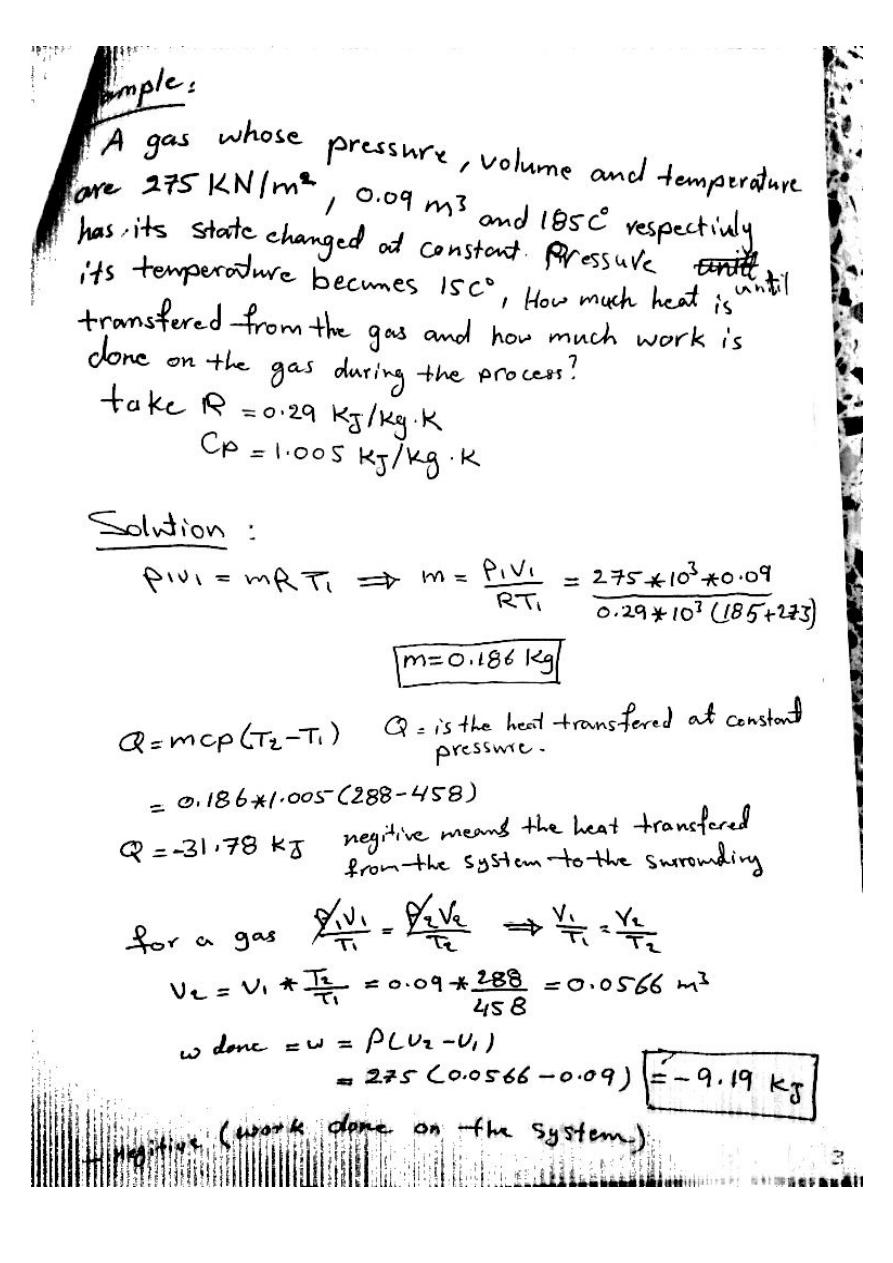 ample:
A gas whose pressure, volume and temperature
are 275 KN/m², 0.09 m³ and 185C° respectivly
has its state changed at constant Pressure until
its temperature becumes 15C°, How much heat is
transfered from the gas and how much work is
done on the gas during the process?
take R = 0.29 KJ/kg.K
Cp = 1.005 KJ/kg.K
Solution :
P1V1 = mRT1 ⟹ m = P1V1/RT1 = 275*10³*0.09/0.29*10³(185+273)
m=0.186 kg
Q=mcp(T2-T1) Q = is the heat transfered at constant
pressure.
= 0.186*1.005(288-458)
Q = -31.78 KJ negitive means the heat transfered
from the system to the surrounding
for a gas P1V1/T1 = P2V2/T2 ⟹ V1/T1 = V2/T2
V2 = V1 * T2/T1 = 0.09 * 288/458 = 0.0566 m³
w done = w = P(V2-V1)
= 275 (0.0566-0.09) = -9.19 KJ
- negitive (work done on the system)
3